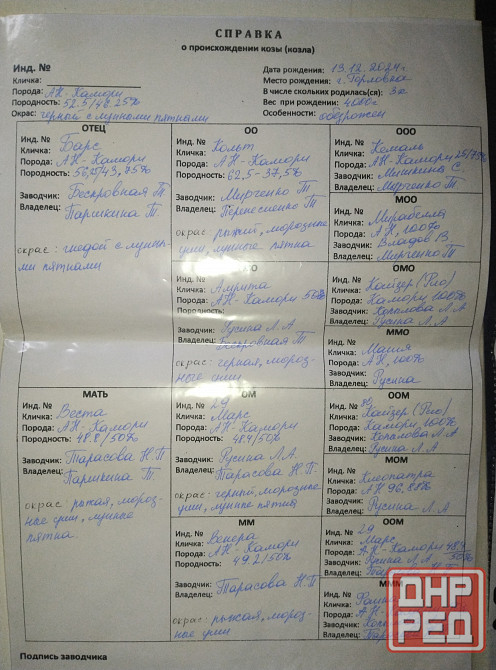 СПРАВКА
о происхождении козы (козла)
Инд. №
Кличка:
Порода: АН-Камори
Породность: 52.5/48.25%
Окрас: черной с лунными пятнами
Дата рождения: 13.12.2024г
Место рождения: г. Горловка
В числе скольких родилась(ся): 3х
Вес при рождении: 4000г
Особенности: обезрожен
ОТЕЦ
Инд. №
Кличка: Барс
Порода: АН-Камори
Породность: 56,25/43,75%
Заводчик: Бескровная Т
Владелец: Паршкина Т.
окрас: гнедой с лунны-
ми пятнами
ОО
Инд. №
Кличка: Кольт
Порода: АН-Камори
Породность: 62.5-37,5%
Заводчик: Мирченко Т
Владелец: Т
окрас: рыжий, морозные
уши, лунные пятна
ООО
Инд. №
Кличка:
Порода: АН-Камори 25/75%
Заводчик: С.
Владелец: Мирченко Т
МОО
Инд. №
Кличка: Мирабелла
Порода: АН, 100%
Заводчик: Владов В.
Владелец: Мирченко Т
МО
Инд. №
Кличка: Амрита
Порода: АН-Камори 50%
Породность:
Заводчик: Русина Л.А
Владелец: Бескровная Т
окрас: черная, мороз-
ные уши
ОМО
Инд. №
Кличка: Кайзер (Рио)
Порода: Камори 100%
Заводчик: Хохлова Л.А
Владелец: Русина Л.А
ММО
Инд. №
Кличка: Майя
Порода: АН, 100%
Заводчик:
Владелец: Русина
МАТЬ
Инд. №
Кличка: Веста
Порода: АН-Камори
Породность: 48.8/50%
Заводчик: Тарасова Н.П
Владелец: Паршкина Т.
окрас: рыжая, мороз-
ные уши, лунные
пятна.
ОМ
Инд. № 29
Кличка: Марс
Порода: АН-Камори
Породность: 48.4/50%
Заводчик: Русина Л.А.
Владелец: Тарасова Н.П.
окрас: черный, морозные
уши, лунные пятна
ООМ
Инд. №
Кличка: Кайзер (Рио)
Порода: Камори, 100%
Заводчик: Хохлова Л.А
Владелец: Русина Л.А
МОМ
Инд. №
Кличка: Клеопатра
Порода: АН 96,88%
Заводчик:
Владелец: Русина Л.А
ММ
Инд. №
Кличка: Венера
Порода: АН-Камори
Породность: 49.2/50%
Заводчик:
Владелец: Тарасова Н.П
окрас: рыжая, мороз-
ные уши
ООМ
Инд. № 29
Кличка: Марс
Порода: АН-Камори 48.4
50%
Заводчик: Русина Л.А
Владелец:
МММ
Инд. №
Кличка:
Порода:
Заводчик:
Владелец:
Подпись заводчика
ДНР
РЕД